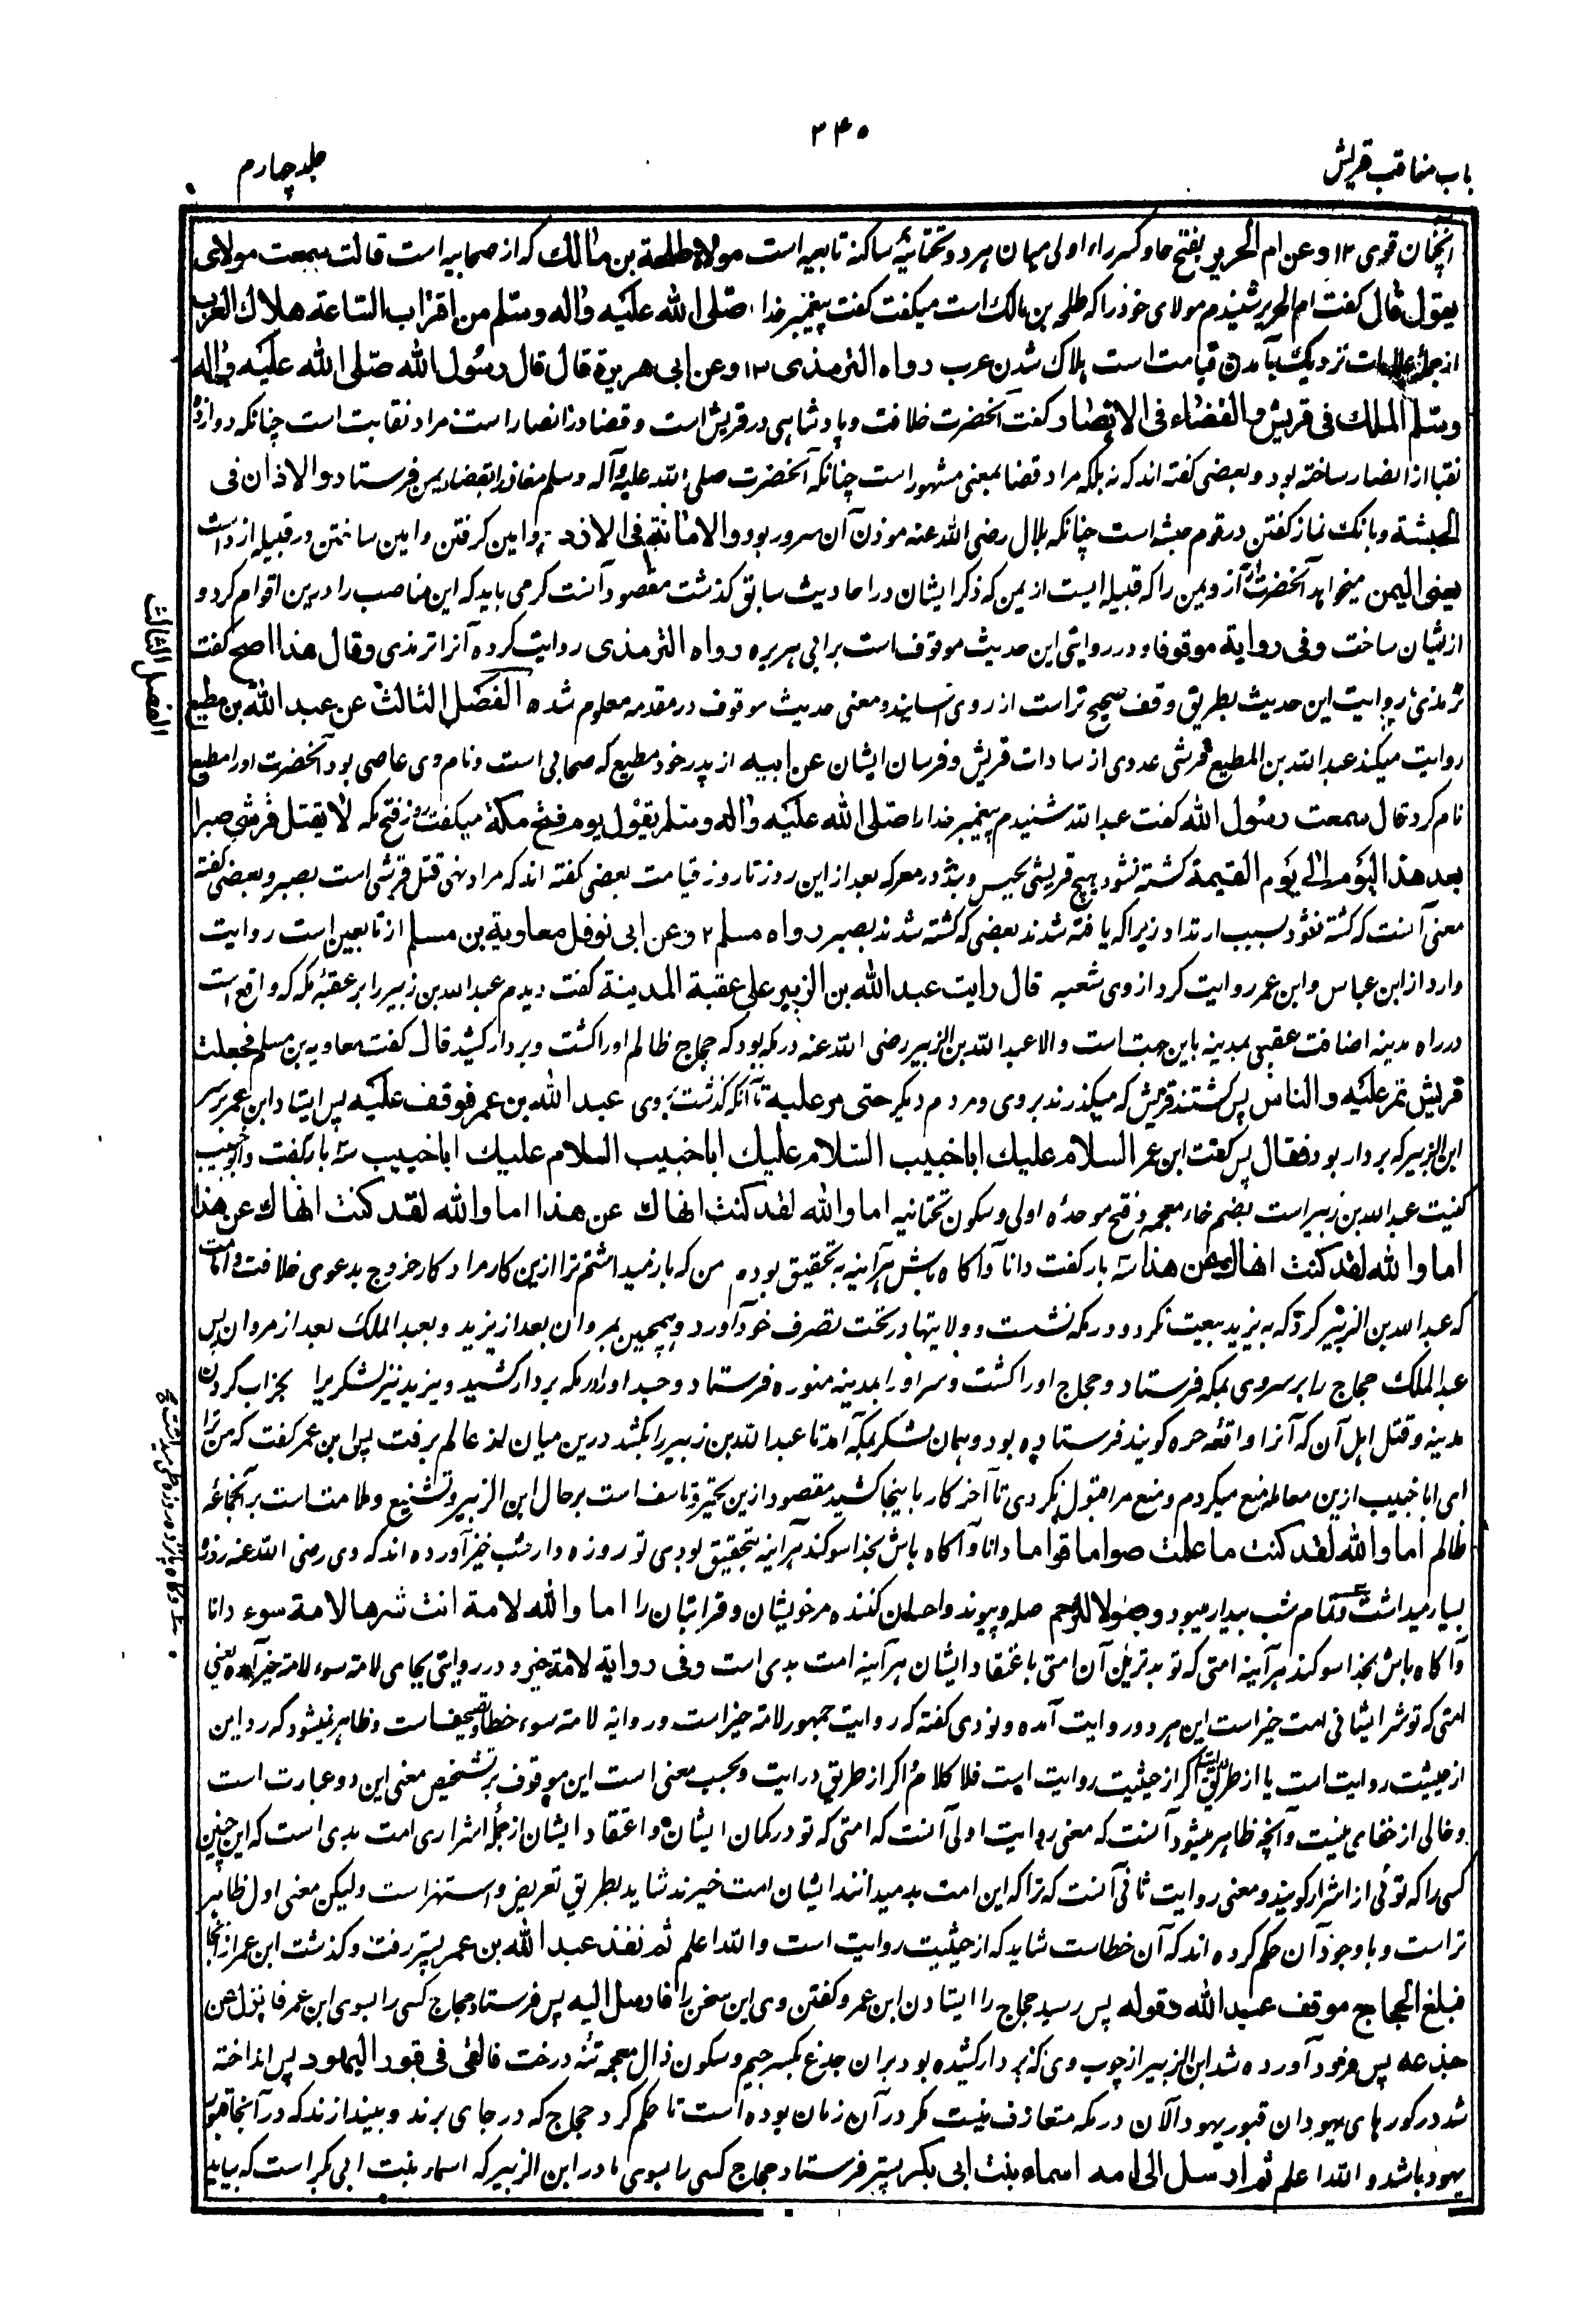 ۳۴۰
باب مناقب قریش
جلد چهارم
آنچنان قوی ۱۲ وعن ام الحریر بفتح حا و کسر راء اولی میان هر دو تحتانیهٔ ساکنه تابعیه است مولاة طلحة بن مالک که از صحابیه است قالت سمعت مولای
یقول قال گفت ام الحریر شنیدم مولای خود را که طلحه بن مالک است میگفت گفت پیغمبر خدا صلی الله علیه واله وسلم من اقتراب الساعة هلاك العرب
از جملهٔ علامات نزدیک آمدن قیامت است هلاک شدن عرب رواه الترمذی ۱۳ وعن ابی هریرة قال قال رسول الله صلی الله علیه واله
وسلم الملك فی قریش والقضاء فی الانصار گفت آنحضرت خلافت و پادشاهی در قریش است و قضا در انصار است مراد نقابت است چنانکه دوازده
نقبا از انصار ساخته بود و بعضی گفته اند که نه بلکه مراد قضا بمعنی مشهور است چنانکه آنحضرت صلی الله علیه وآله وسلم معاذ را بقضاء یمن فرستاد والاذان فی
الحبشة و بانک نماز گفتن در قوم حبشه است چنانکه بلال رضی الله عنه موذن آن سرور بود والامانة فی الازد و امین گرفتن و امین ساختن در قبیله ازد است
یعنی الیمن میخواهد آنحضرت از ازد یمن را که قبیله ایست از یمن که ذکر ایشان در احادیث سابق گذشت مقصود آنست که می باید که این مناصب را درین اقوام کرد و
ازیشان ساخت وفی روایة موقوفا و در روایتی این حدیث موقوف است بر ابی هریره رواه الترمذی روایت کرده آنرا ترمذی وقال هذا اصح گفت
ترمذی روایت این حدیث بطریق وقف صحیح تر است از روی اسانید و معنی حدیث موقوف در مقدمه معلوم شده الفصل الثالث عن عبد الله بن مطیع
روایت میکند عبدالله بن المطیع قرشی عدوی از سادات قریش و فرسان ایشان عن ابیه از پدر خود مطیع که صحابی است و نام وی عاصی بود آنحضرت او را مطیع
نام کرد قال سمعت رسول الله گفت عبدالله شنیدم پیغمبر خدا را صلی الله علیه واله وسلم یقول یوم فتح مکة میگفت روز فتح مکه لا یقتل قرشی صبرا
بعد هذا الیوم الی یوم القیمة کشته نشود هیچ قریشی بحبس و بند در معرکه بعد از این روز تا روز قیامت بعضی گفته اند که مراد نهی قتل قرشی است بصبر و بعضی گفته
معنی آنست که کشته نشود بسبب ارتداد زیرا که یافته شدند بعضی که کشته شدند بصبر رواه مسلم ۲ وعن ابی نوفل معاویة بن مسلم از تابعین است روایت
دارد از ابن عباس و ابن عمر روایت کرد از وی شعبه قال رایت عبد الله بن الزبیر علی عقبة المدینة گفت دیدم عبدالله بن زبیر را بر عقبهٔ مکه که واقع است
در راه مدینه اضافت عقبی بمدینه باین جهت است والا عبدالله بن الزبیر رضی الله عنه در مکه بود که حجاج ظالم او را کشت و بر دار کشید قال گفت معاویه بن مسلم فجعلت
قریش تمر علیه والناس پس گشتند قریش که میگذرند بر وی و مردم دیگر حتی مر علیه تا آنکه گذشت بر وی عبد الله بن عمر فوقف علیه پس ایستاد ابن عمر بر سر
ابن الزبیر که بر دار بود فقال پس گفت ابن عمر السلام علیك ابا خبیب السلام علیك ابا خبیب السلام علیك ابا خبیب سه بار گفت وابو خبیب
کنیت عبدالله بن زبیر است بضم خاء معجمه و فتح موحدهٔ اولی و سکون تحتانیه اما والله لقد کنت انهاك عن هذا اما والله لقد کنت انهاك عن هذا
اما والله لقد کنت انهاك عن هذا سه بار گفت دانا و آگاه باش هر آینه به تحقیق بودم من که باز میداشتم ترا ازین کار مراد کار خروج بدعوی خلافت و امامت
که عبدالله بن الزبیر کرد که به یزید بیعت نکرد و در مکه نشست و ولایتها در تحت تصرف خود آورد و همچنین بمروان بعد از یزید و بعبد الملک بعد از مروان پس
عبدالملک حجاج را بر سر وی بمکه فرستاد و حجاج او را کشت و سر او را بمدینه منوره فرستاد و جسد او را در مکه بر دار کشید و یزید نیز لشکر را بخراب کردن
مدینه و قتل اهل آن که آنرا واقعهٔ حره گویند فرستاده بود و همان لشکر بمکه آمد تا عبدالله بن زبیر را بکشد درین میان از عالم برفت پس ابن عمر گفت که من ترا
ای ابا خبیب ازین معامله منع میکردم و منع مرا قبول نکردی تا آخر کار باینجا کشید مقصود ازین تحیر و تاسف است بر حال ابن الزبیر و تشنیع و ملامت است بر آنجماعهٔ
ظالم اما والله لقد کنت ما علمت صواما قواما دانا و آگاه باش بخدا سوگند هر آینه بتحقیق بودی تو روزه دار شب خیز آورده اند که وی رضی الله عنه روزه
بسیار میداشت و تمام شب بیدار میبود وصولا للرحم صله و پیوند و احسان کننده مر خویشان و قرابتان را اما والله لامة انت شرها لامة سوء دانا
و آگاه باش بخدا سوگند هر آینه امتی که تو بدترین آن امتی باعتقاد ایشان هر آینه امت بدی است وفی روایة لامة خیر و در روایتی بجای لامة سوء لامة خیر آمده یعنی
امتی که تو شر ایشانی امت خیر است این هر دو روایت آمده و نووی گفته که روایت جمهور لامة خیر است و روایة لامة سوء خطا و تصحیف است و ظاهر نمیشود که رد این
از حیثیت روایت است یا از طریق درایت اگر از حیثیت روایت است فلا کلام و اگر از طریق درایت و بحسب معنی است این موقوف بر تشخیص معنی این دو عبارت است
و خالی از خفای نیست و آنچه ظاهر میشود آنست که معنی روایت اولی آنست که امتی که تو در گمان ایشان و اعتقاد ایشان از جملهٔ اشراری امت بدی است که این چنین
کسی را که توئی از اشرار گویند و معنی روایت ثانی آنست که ترا که این امت بد میدانند ایشان امت خیرند شاید بطریق تعریض و استهزا است ولیکن معنی اول ظاهر
تر است و با وجود آن حکم کرده اند که آن خطاست شاید که از حیثیت روایت است والله اعلم ثم نفذ عبد الله بن عمر پستر رفت و گذشت ابن عمر از آنجا
فبلغ الحجاج موقف عبد الله وقوله پس رسید حجاج را ایستادن ابن عمر و گفتن وی این سخن را فارسل الیه پس فرستاد حجاج کسی را بسوی ابن عمر فانزل عن
جذعه پس فرود آورده شد ابن الزبیر از چوب وی که بر دار کشیده بود بر ان جذع بکسر جیم و سکون ذال معجمه تنه درخت فالقی فی قبور الیهود پس انداخته
شد در گورهای یهودان قبور یهود الآن در مکه متعارف نیست مگر در آن زمان بوده است تا حکم کرد حجاج که در جای برند و بیندازند که در آنجا قبور
یهود باشد والله اعلم ثم ارسل الی امه اسماء بنت ابی بکر پستر فرستاد حجاج کسی را بسوی مادر ابن الزبیر که اسماء بنت ابی بکر است که بیاید
الفصل الثالث